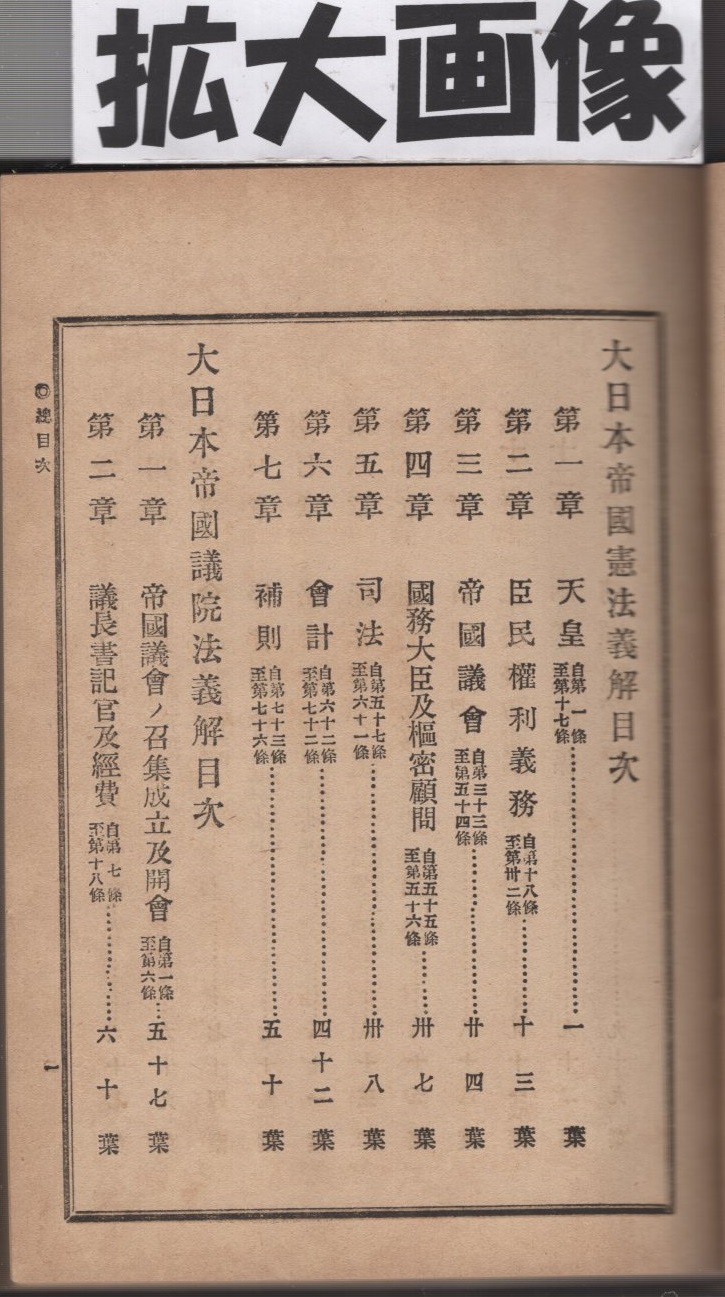 拡大画像
大日本帝國憲法義解目次
第一章 天皇 自第一條至第十七條 一葉
第二章 臣民權利義務 自第十八條至第卅二條 十三葉
第三章 帝國議會 自第三十三條至第五十四條 廿四葉
第四章 國務大臣及樞密顧問 自第五十五條至第五十六條 卅七葉
第五章 司法 自第五十七條至第六十一條 卅八葉
第六章 會計 自第六十二條至第七十二條 四十二葉
第七章 補則 自第七十三條至第七十六條 五十葉
大日本帝國議院法義解目次
第一章 帝國議會ノ召集成立及開會 自第一條至第六條 五十七葉
第二章 議長書記官及經費 自第七條至第十八條 六十葉
◎總目次
一